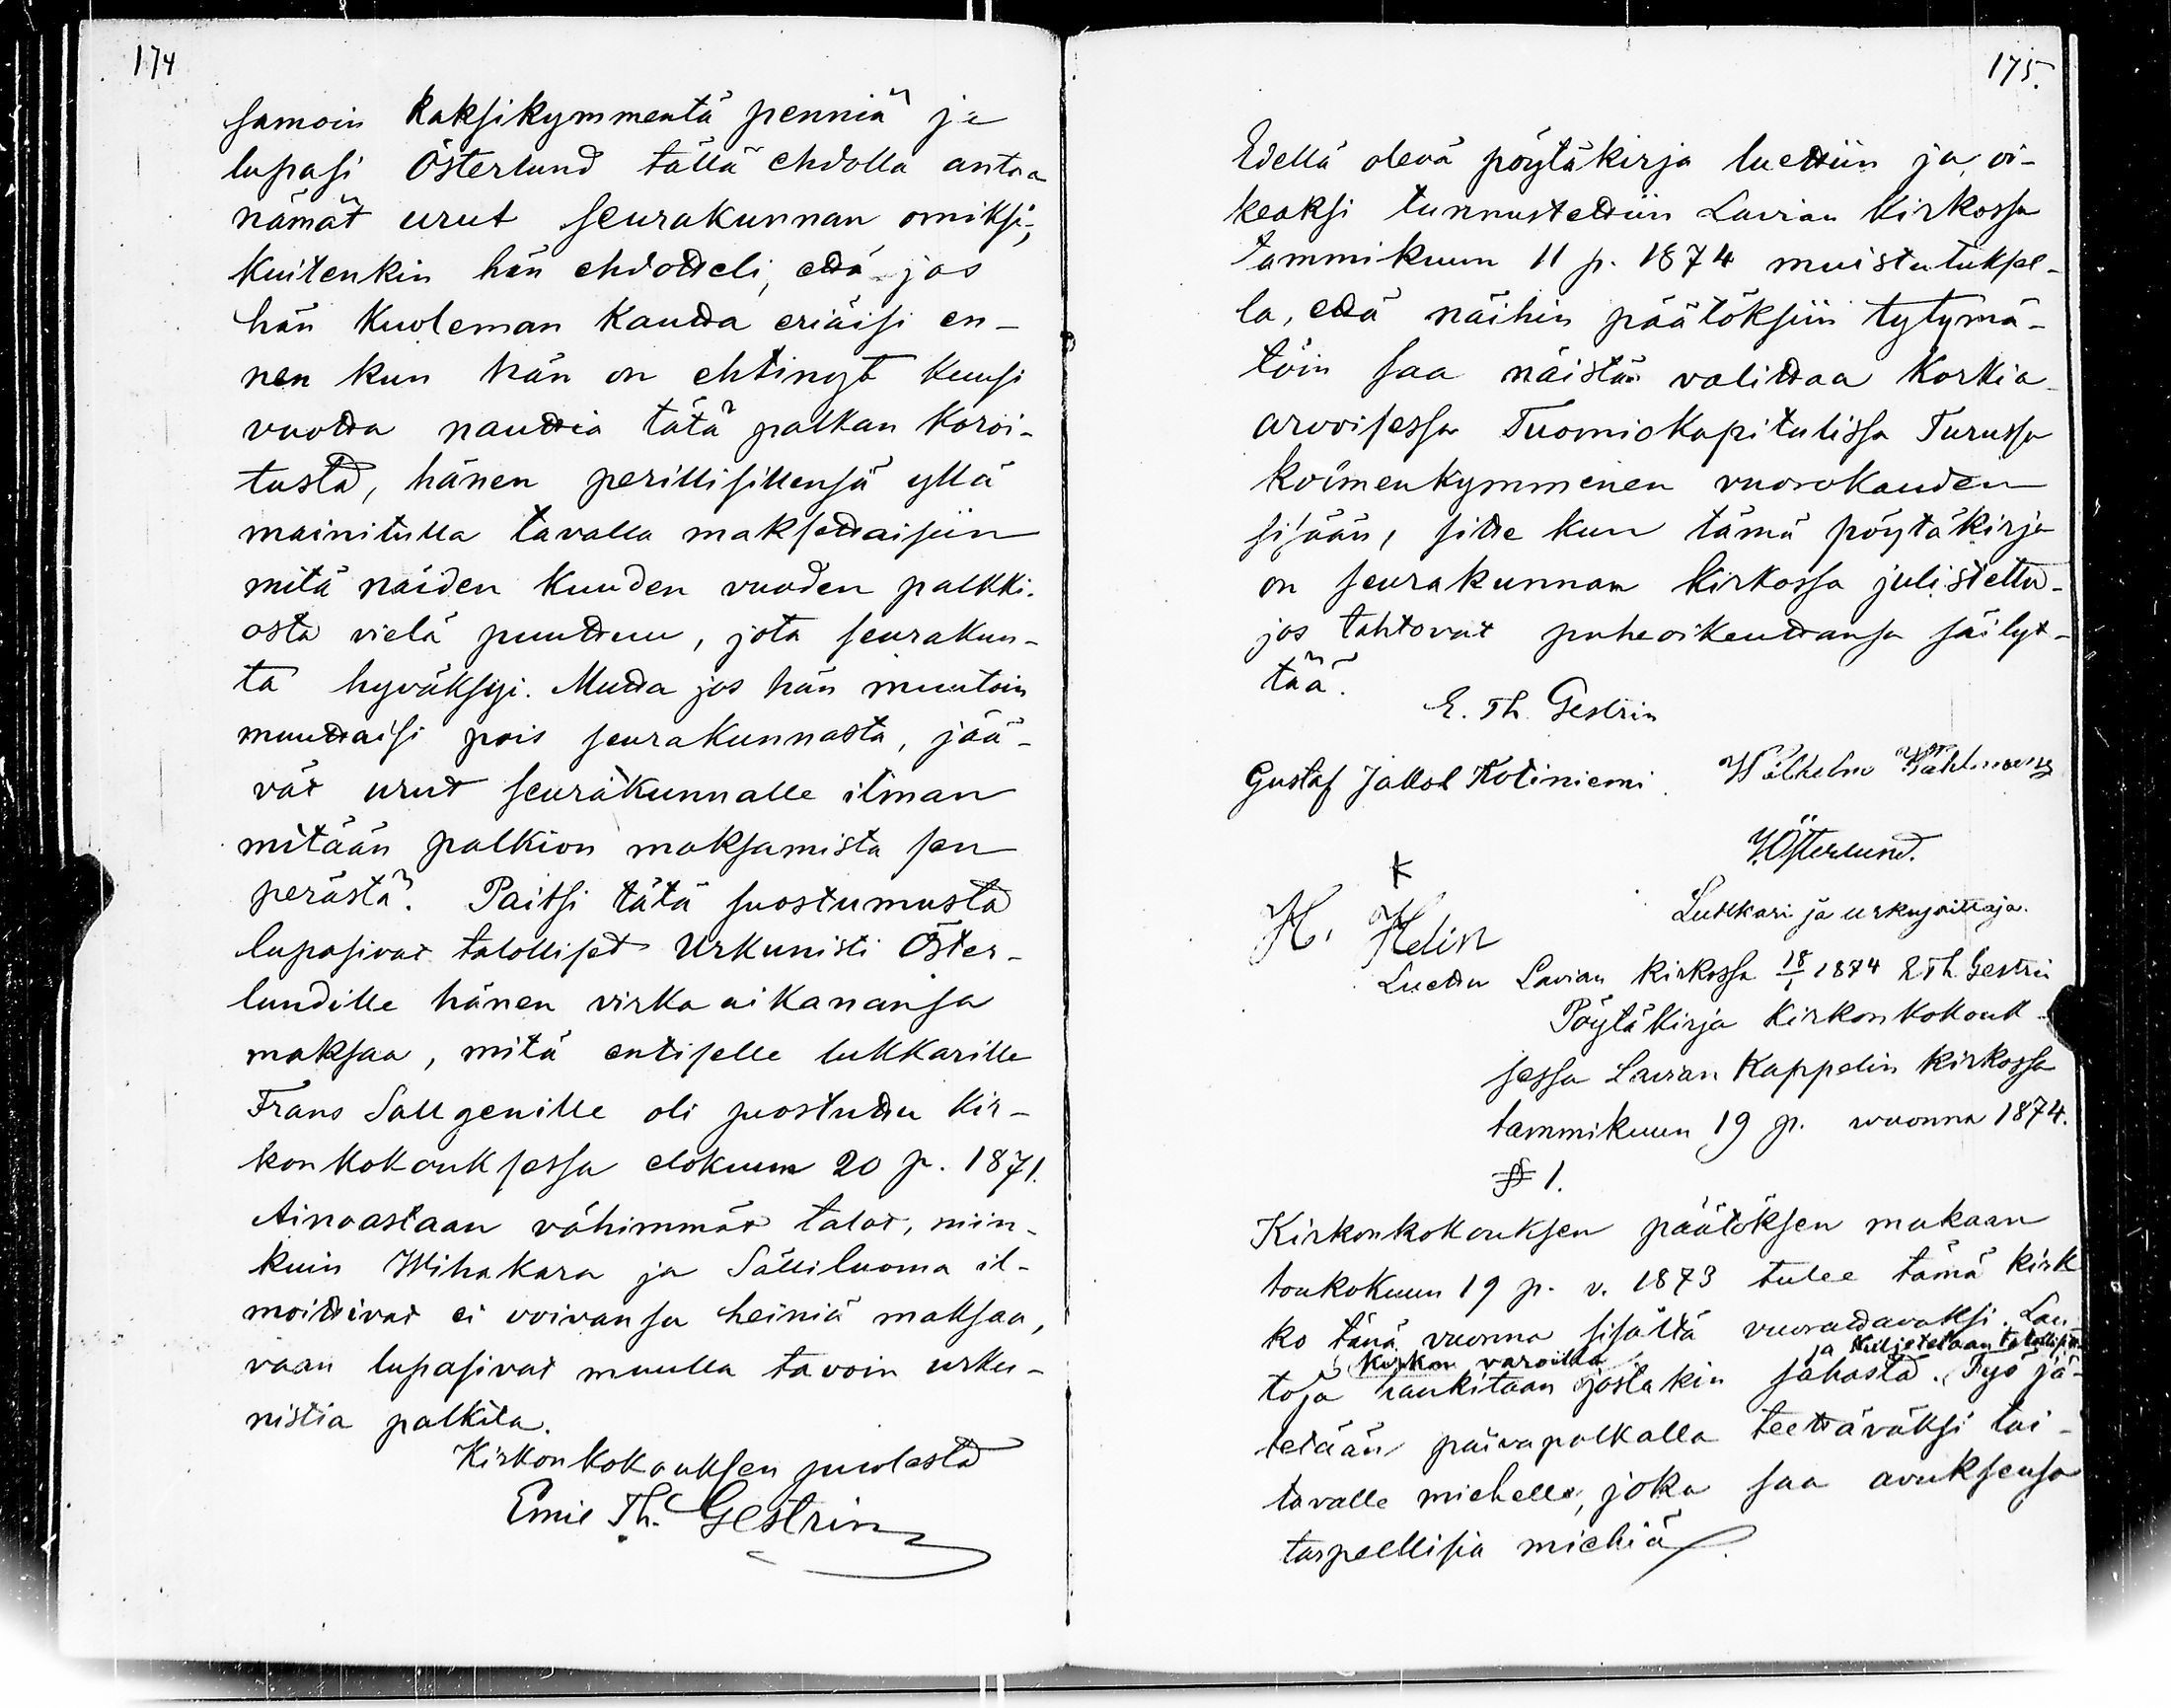 174
samoin kaksikymmentä penniä ja
lupasi Österlund tällä ehdolla antaa
nämät urut seurakunnan omiksi;
kuitenkin hän ehdotteli, että jos
hän kuoleman kautta eriäisi en-
nen kun hän on ehtinyt kuusi
vuotta nauttia tätä palkan koroi-
tusta, hänen perillisillensä yllä
mainitulla tavalla maksettaisiin
mitä näiden kuuden vuoden palkki-
osta vielä puuttuu, jota seurakun-
ta hyväksyi. Mutta jos hän muutoin
muuttaisi pois seurakunnasta, jää-
vät urut seurakunnalle ilman
mitään palkion maksamista sen
perästä. Paitsi tätä suostumusta
lupasivat talolliset Urkunisti Öster-
lundille hänen virka aikanansa
maksaa, mitä entiselle lukkarille
Frans Sallgenille oli suostuttu kir-
konkokouksessa elokuun 20 p. 1871.
Ainoastaan vähimmät talot, niin-
kuin Wihakara ja Sälliluoma il-
moittivat ei voivansa heiniä maksaa,
vaan lupasivat muulla tavoin urku-
nistia palkita.
Kirkonkokouksen puolesta
Emil Th. Gestrin
175.
Edellä oleva pöytäkirja luettiin ja oi-
keaksi tunnustettiin Lavian kirkossa
tammikuun 11 p. 1874 muistutuksel-
la, että näihin päätöksiin tytymä-
töin saa näistän valittaa Korkia
arvoisessa Tuomiokapitulissa Turussa
kolmenkymmenen vuorokauden
sisään, sitte kun tämä pöytäkirja
on seurakunnan kirkossa julistettu-
jos tahtovat puheoikeuttansa säilyt-
tää.
E. Th. Gestrin
Gustaf Jakob Kotiniemi. Wilhelm
Österlund.
Lukkari ja urkujsoittaja.
H. K Helin
Luettu Lavian kirkossa 18/1 1874 E Th Gestrin
Pöytäkirja Kirkonkokouk-
sessa Lavian Kappelin kirkossa
tammikuun 19 p. wuonna 1874.
§ 1.
Kirkonkokouksen päätöksen mukaan
toukokuun 19 p. v. 1873 tulee tämä kirk
ko tänä vuonna sisältä vuorattavaksi. Lau-
kirkon varoilla ja kuljetetaan talollisilta
toja hankitaan jostakin sahasta. Työ jä-
tetään päiväpalkalla teettäväksi tai-
tavalle miehelle, joka saa avuksensa
tarpeellisia miehiä.